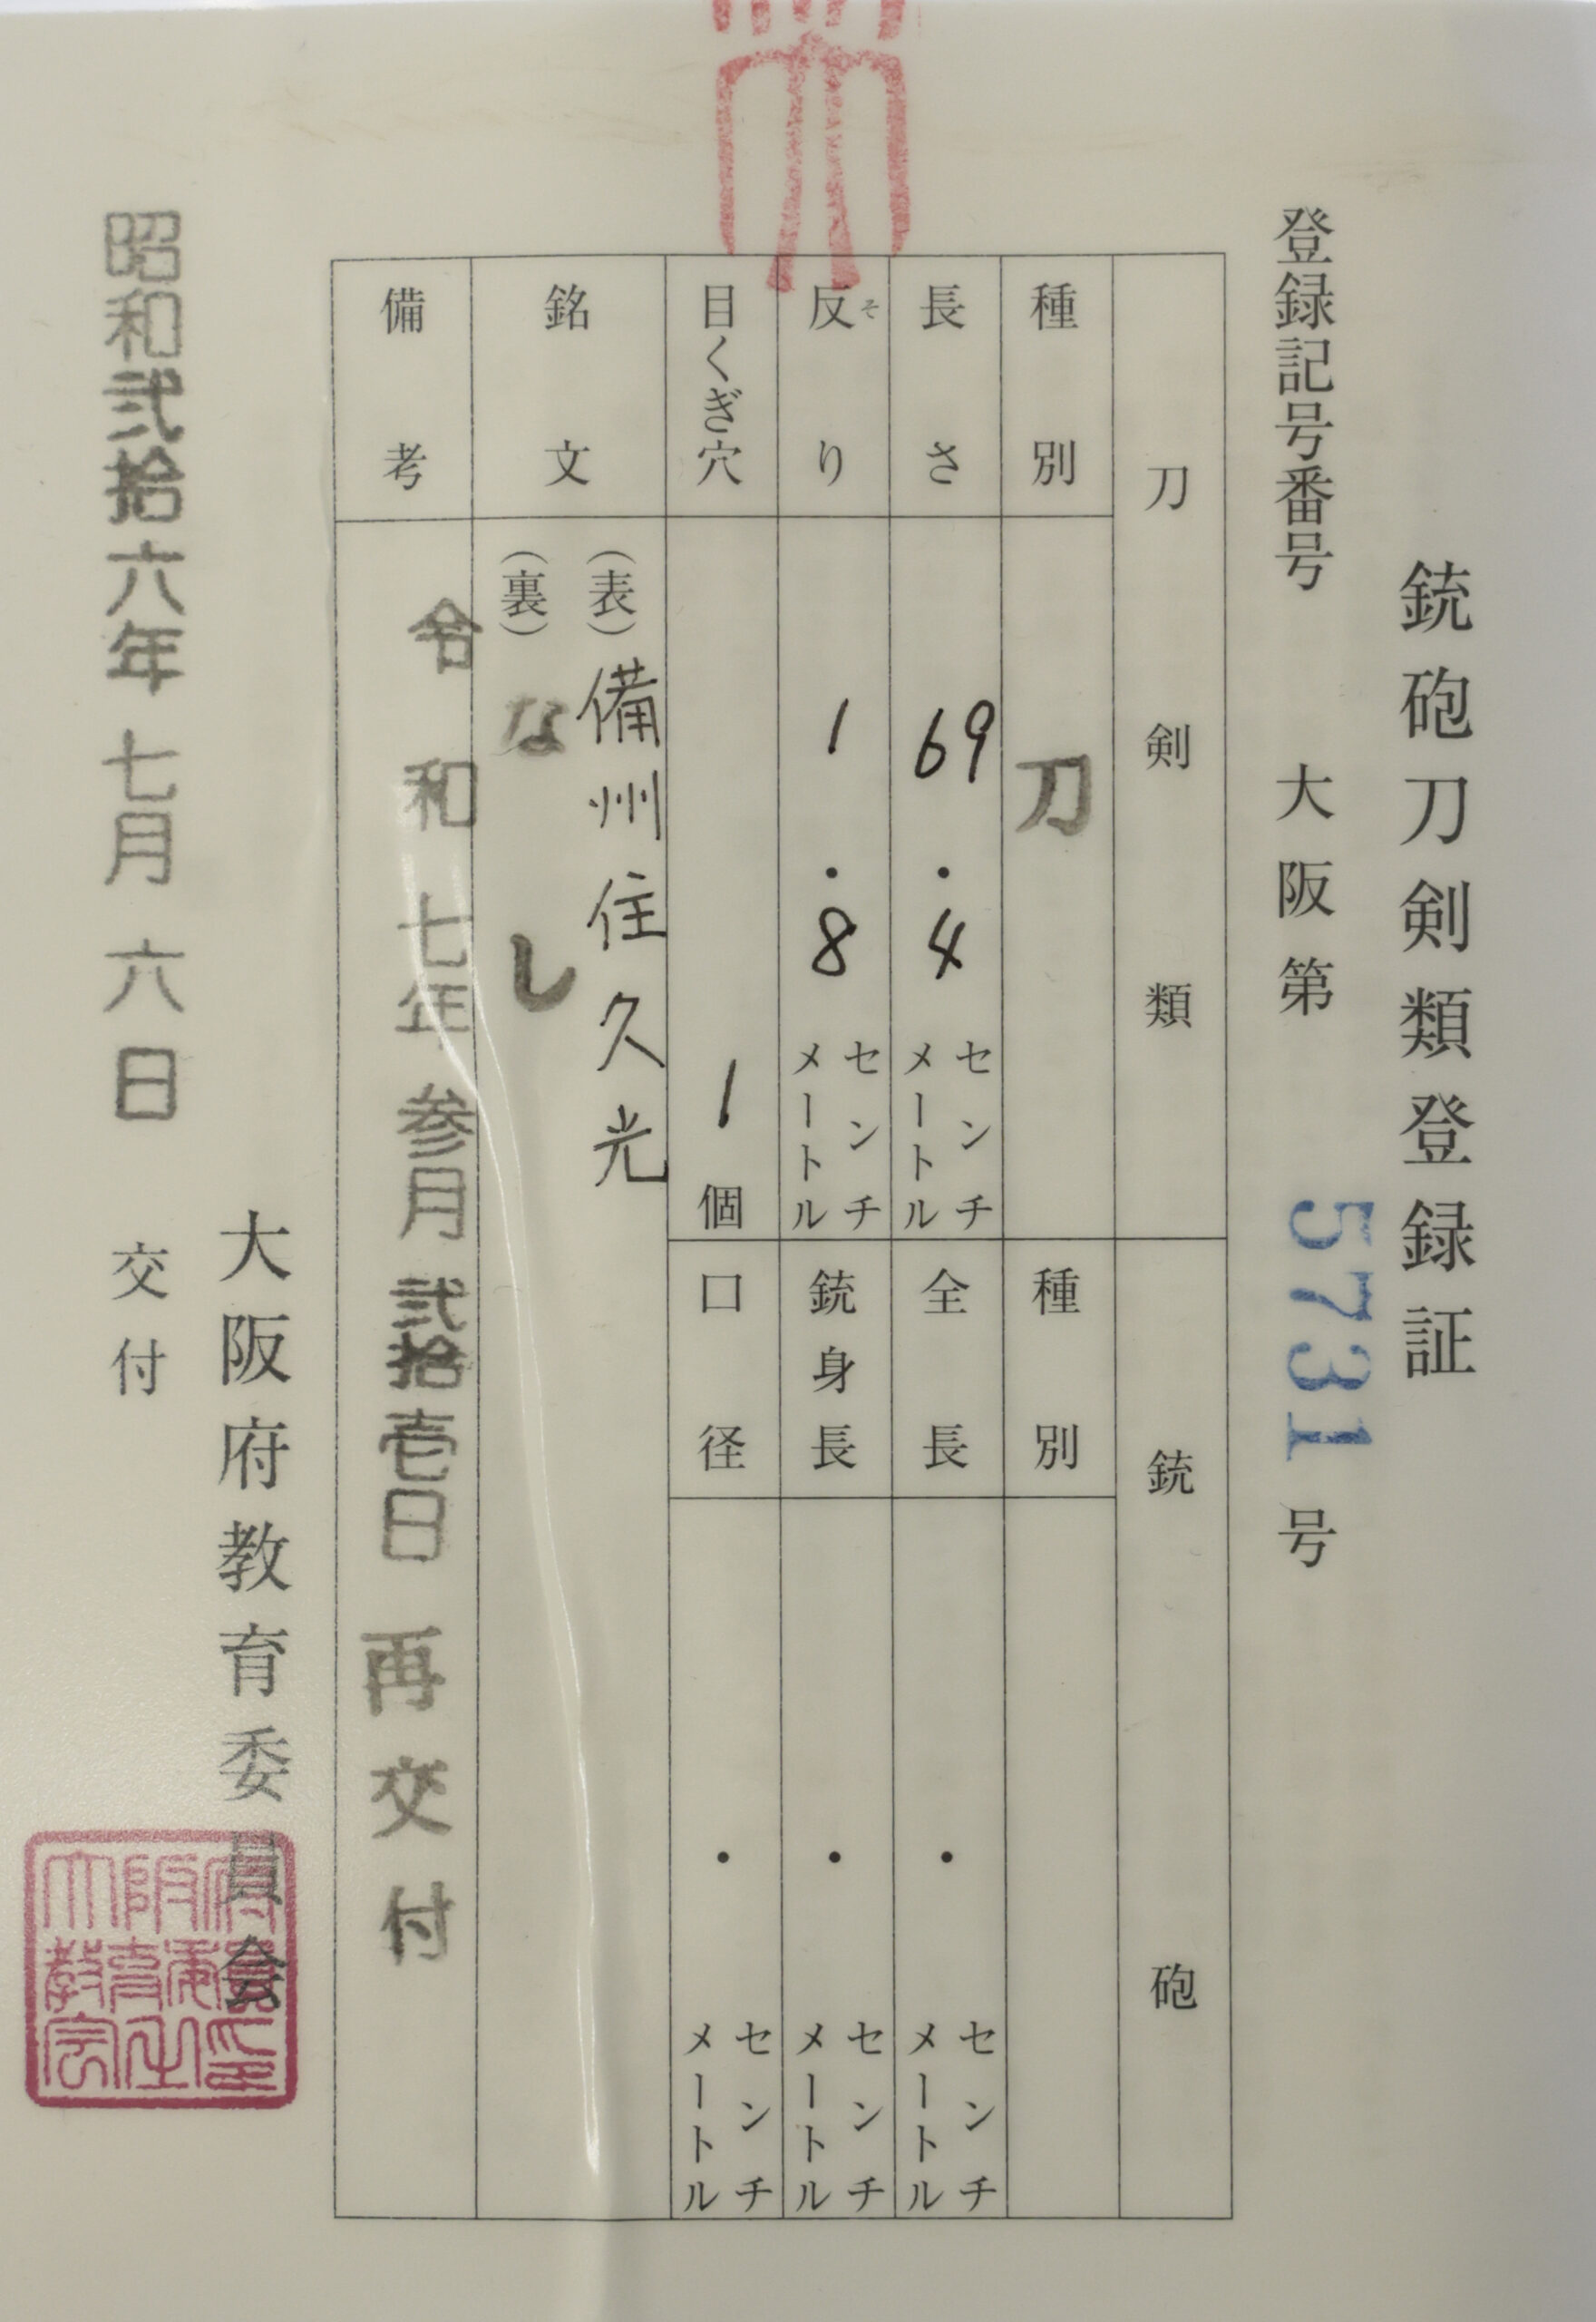 銃砲刀剣類登録証
登録記号番号 大阪第 5731 号
刀剣類
種別 刀
長さ 69.4 センチメートル
反り そ 1.8 センチメートル
目くぎ穴 1 個
銘文 (表) 備州住久光
(裏) なし
備考 令和七年参月弐拾壱日再交付
銃砲
種別
全長 . センチメートル
銃身長 . センチメートル
口径 . センチメートル
大阪府教育委員会
昭和弐拾六年七月六日 交付
大阪府教育委員会之印